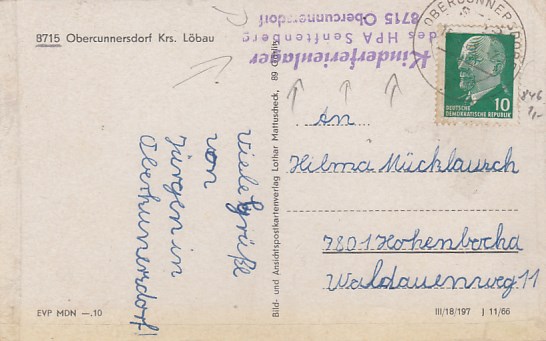 8715 Obercunnersdorf Krs. Löbau
Kinderferienlager
des HPA Senftenberg
8715 Obercunnersdorf
OBERCUNNERSDORF
DEUTSCHE
DEMOKRATISCHE REPUBLIK
10
846
1,-
Viele Grüße
von
Jürgen in
Oberkunersdorf!
Bild- und Ansichtspostkartenverlag Lothar Mattuscheck, 89 Görlitz
An
Hilma Mücklausch
7801 Hohenbocka
Waldauenweg 11
EVP MDN —.10
III/18/197 J 11/66